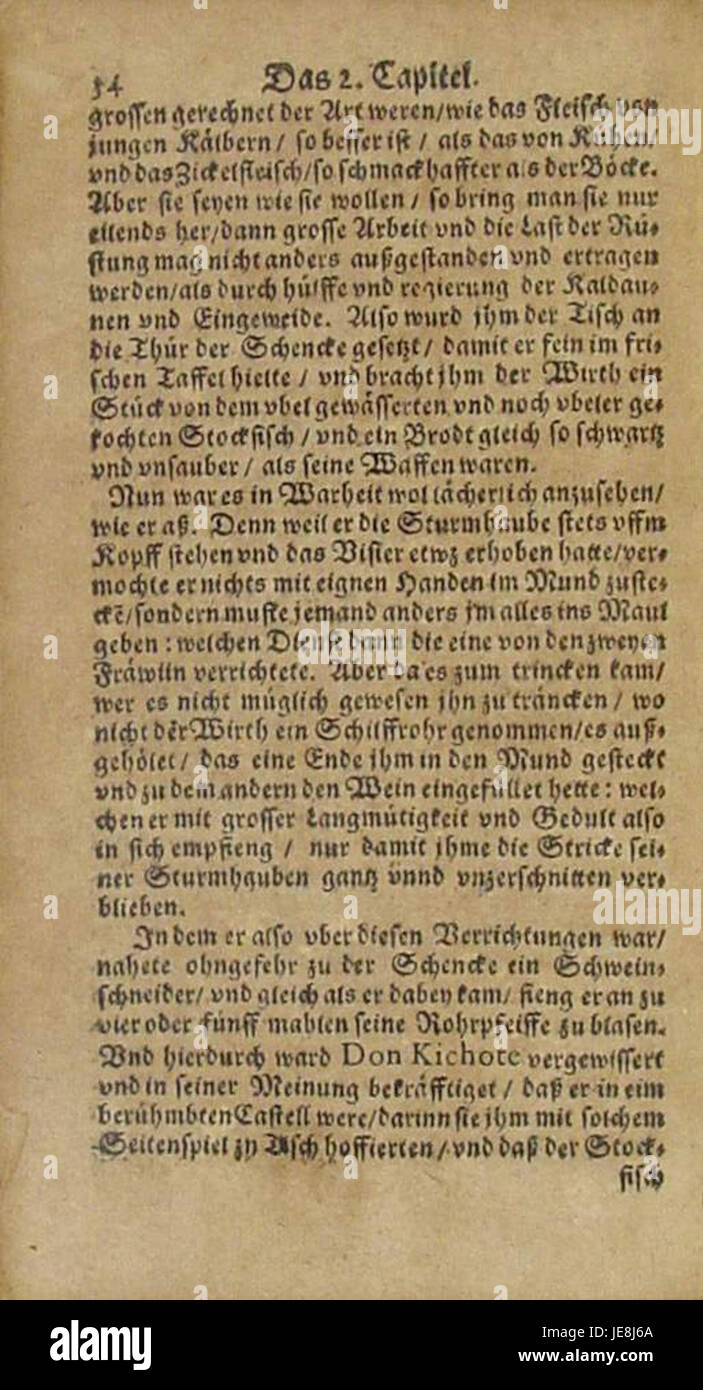 34 Das 2. Capitel.
grossen gerechnet der Art weren/wie das Fleisch von
jungen Kälbern/ so besser ist/ als das von Kühen/
vnd das Zickelfleisch/so schmackhaffter als der Böcke.
Aber sie seyen wie sie wollen/ so bring man sie nur
eilends her/dann grosse Arbeit vnd die Last der Rü-
stung mag nicht anders außgestanden vnd ertragen
werden/als durch hülffe vnd regierung der Kaldau-
nen vnd Eingeweide. Also wurd jhm der Tisch an
die Thür der Schencke gesetzt/ damit er fein im fri-
schen Taffel hielte/ vnd bracht jhm der Wirth ein
Stück von dem vbel gewässerten vnd noch vbeler ge-
kochten Stockfisch/ vnd ein Brodt gleich so schwartz
vnd vnsauber/ als seine Waffen waren.
Nun war es in Warheit wol lächerlich anzusehen/
wie er aß. Denn weil er die Sturmhaube stets vffm
Kopff stehen vnd das Visier etwz erhoben hatte/ver-
mochte er nichts mit eignen Handen im Mund zuste-
ckē/sondern muste jemand anders jm alles ins Maul
geben: welchen Dienst dann die eine von den zweyen
Fräwlin verrichtete. Aber da es zum trincken kam/
wer es nicht müglich gewesen jhn zu träncken/ wo
nicht der Wirth ein Schilffrohr genommen/es auß-
gehölet/ das eine Ende jhm in den Mund gesteckt
vnd zu dem andern den Wein eingefüllet hette: wel-
chen er mit grosser Langmütigkeit vnd Gedult also
in sich empfieng/ nur damit jhme die Stricke sei-
ner Sturmhauben gantz vnnd vnzerschnitten ver-
blieben.
In dem er also vber diesen Verrichtungen war/
nahete ohngefehr zu der Schencke ein Schwein-
schneider/ vnd gleich als er dabey kam/ fieng er an zu
vier oder fünff mahlen seine Rohrpfeiffe zu blasen.
Vnd hierdurch ward Don Kichote vergewissert
vnd in seiner Meinung bekräfftiget/ daß er in eim
berühmbten Castell were/darinn sie jhm mit solchem
Seitenspiel zu Tisch hoffierten/ vnd daß der Stock-
fisch
alamy
Image ID: JE8J6A
www.alamy.com